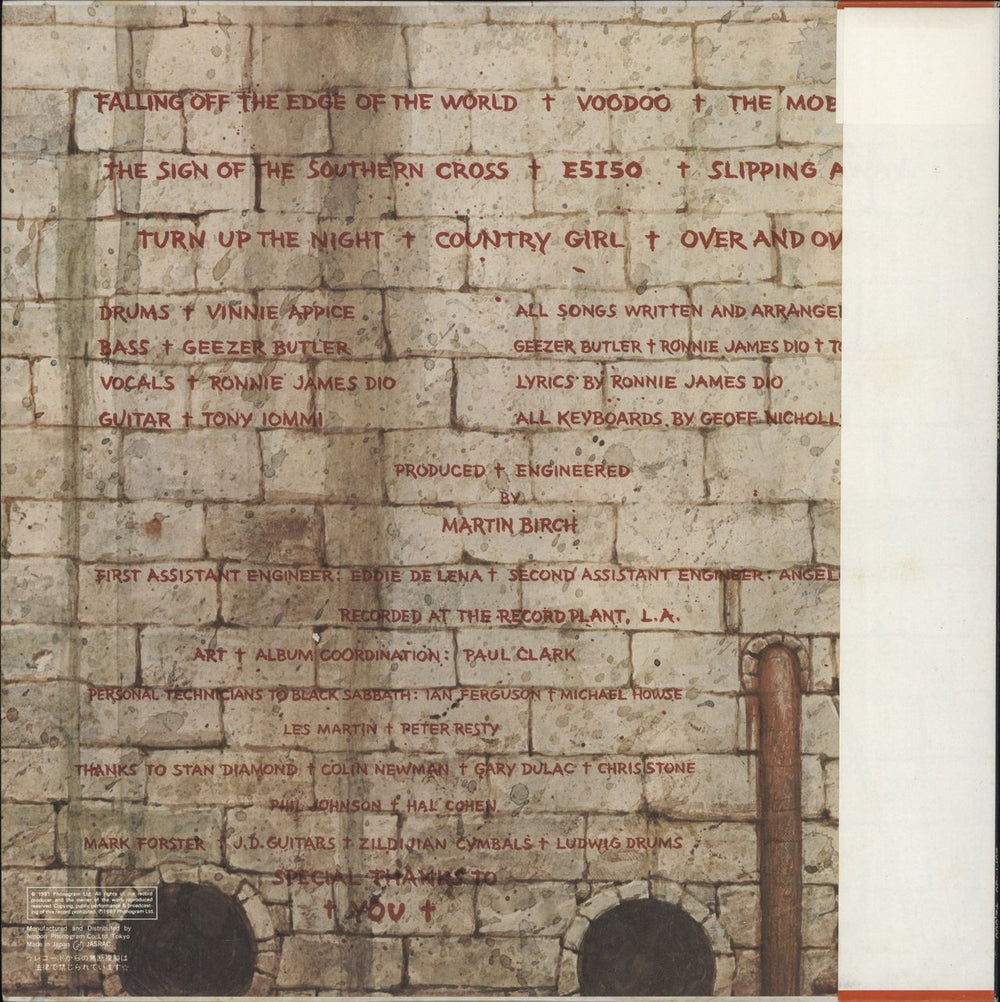 FALLING OFF THE EDGE OF THE WORLD † VOODOO † THE MOB
THE SIGN OF THE SOUTHERN CROSS † E5150 † SLIPPING A
TURN UP THE NIGHT † COUNTRY GIRL † OVER AND OV
DRUMS † VINNIE APPICE
BASS † GEEZER BUTLER
VOCALS † RONNIE JAMES DIO
GUITAR † TONY IOMMI
ALL SONGS WRITTEN AND ARRANGE
GEEZER BUTLER † RONNIE JAMES DIO † TO
LYRICS BY RONNIE JAMES DIO
ALL KEYBOARDS BY GEOFF NICHOLL
PRODUCED † ENGINEERED
BY
MARTIN BIRCH
FIRST ASSISTANT ENGINEER: EDDIE DE LENA † SECOND ASSISTANT ENGINEER: ANGEL
RECORDED AT THE RECORD PLANT, L.A.
ART † ALBUM COORDINATION: PAUL CLARK
PERSONAL TECHNICIANS TO BLACK SABBATH: IAN FERGUSON † MICHAEL HOWSE
LES MARTIN † PETER RESTY
THANKS TO STAN DIAMOND † COLIN NEWMAN † GARY DULAC † CHRIS STONE
PHIL JOHNSON † HAL COHEN
MARK FORSTER † J.D. GUITARS † ZILDJIAN CYMBALS † LUDWIG DRUMS
SPECIAL THANKS TO
† YOU †
℗ 1981 Phonogram Ltd. All rights of the record
producer and the owner of the work reproduced
reserved. Copying, public performance & broadcast-
ing of this record prohibited. ©1981 Phonogram Ltd.
Manufactured and Distributed by
Nippon Phonogram Co., Ltd. Tokyo
Made in Japan JASRAC
☆レコードからの無断複製は
法律で禁じられています☆